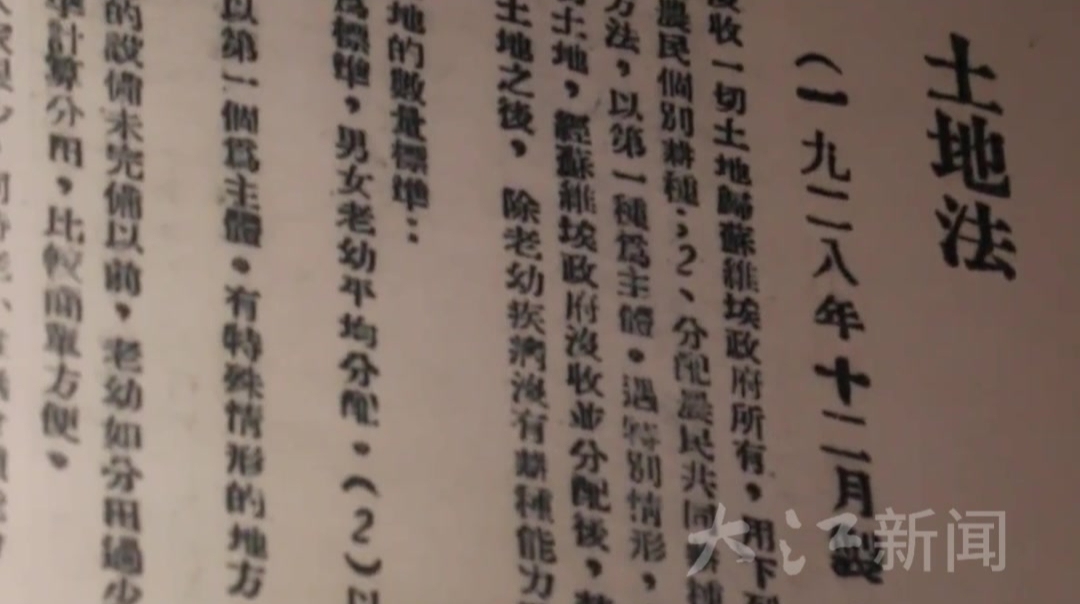 土地法
（一九二八年十二月製
收一切土地歸蘇維埃政府所有，用下列
農民個別耕種；2、分配農民共同耕種
方法，以第一種爲主體。遇特別情形，
土地，經蘇維埃政府沒收並分配後，禁
土地之後，除老幼疾病沒有耕種能力
地的數量標準：
爲標準，男女老幼平均分配。（2）以
以第一個爲主體。有特殊情形的地方
的設備未完備以前，老幼如分田過少
準計算分田，比較簡單方便。
大江新闻